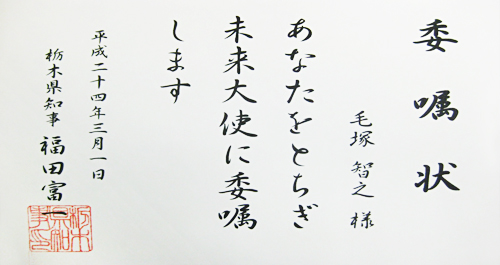 委嘱状
毛塚 智之 様
あなたをとちぎ
未来大使に委嘱
します
平成二十四年三月一日
栃木県知事 福田富一
栃木県知事之印